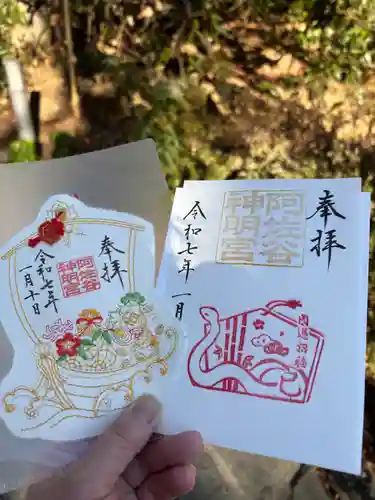 奉拝
阿佐谷
神明宮
令和七年
一月十日
奉拝
阿佐谷
神明宮
令和七年
一月
開運招福